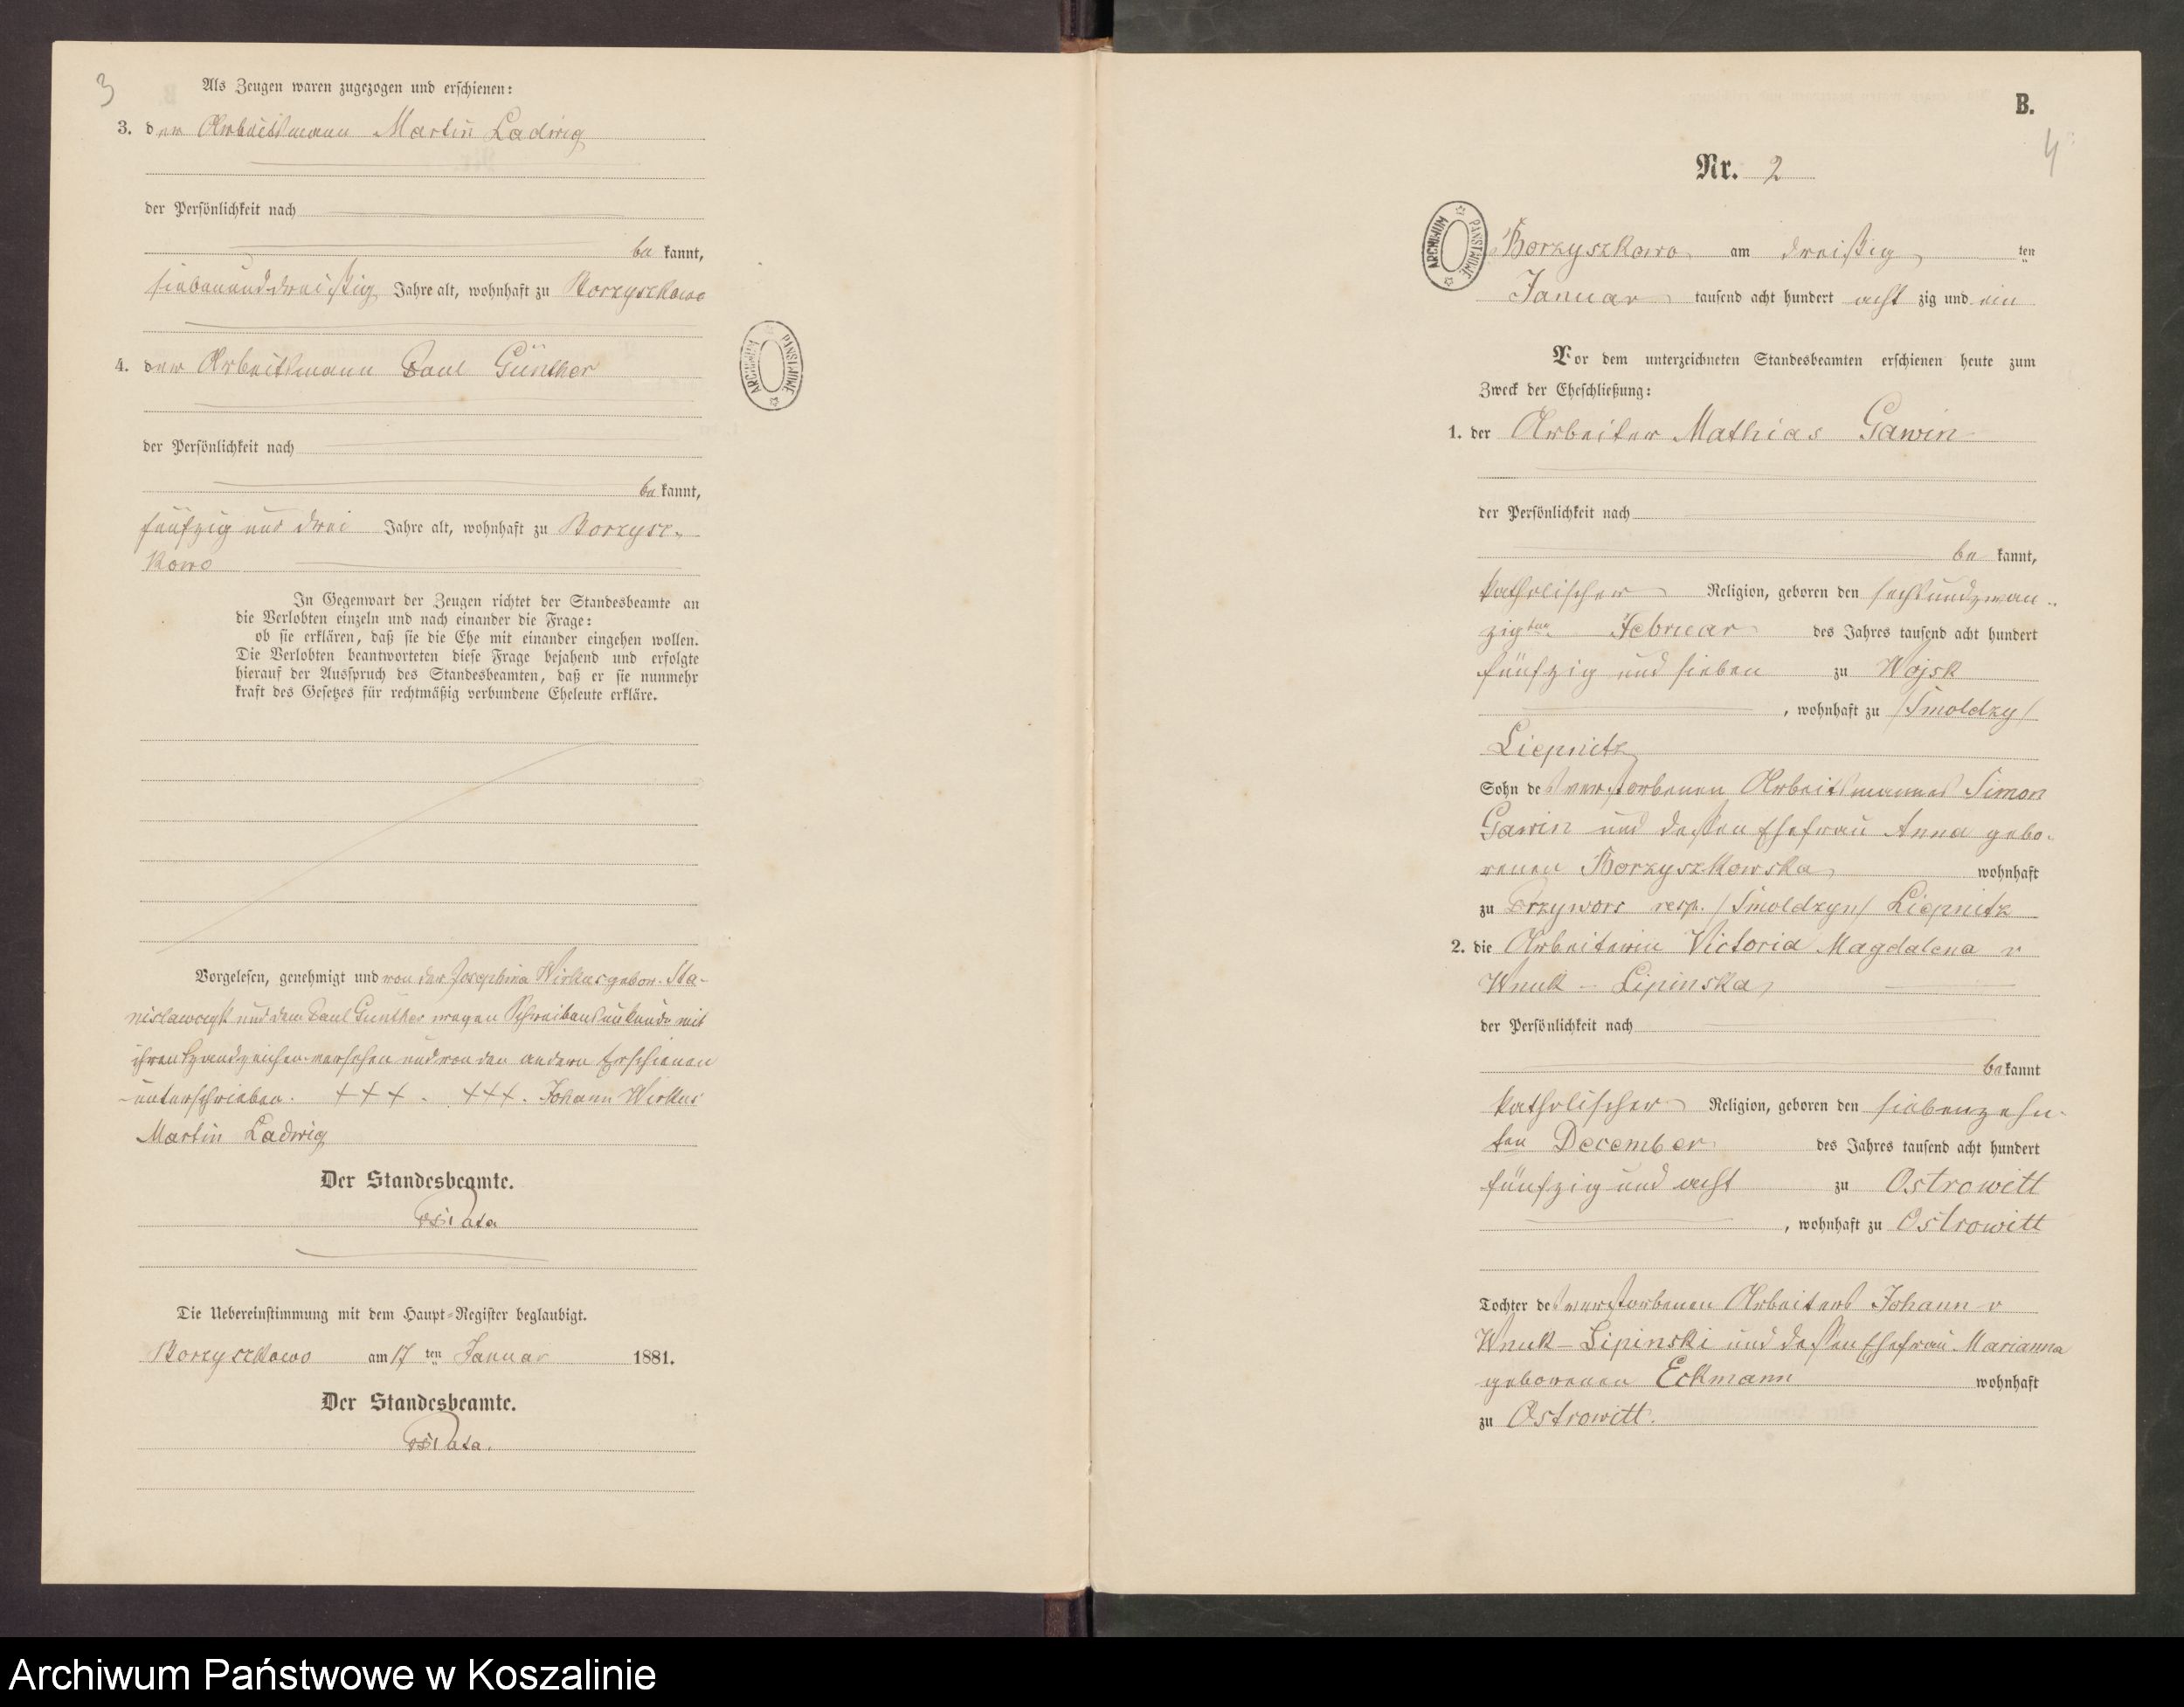 3
Als Zeugen waren zugezogen und erschienen:
3. der Arbeitsmann Martin Ladwig
der Persönlichkeit nach
be kannt,
siebenunddreißig Jahre alt, wohnhaft zu Borzyszkowo
4. der Arbeitsmann Paul Günther
der Persönlichkeit nach
be kannt,
fünfzig und drei Jahre alt, wohnhaft zu Borzysz-
kowo
In Gegenwart der Zeugen richtet der Standesbeamte an
die Verlobten einzeln und nach einander die Frage:
ob sie erklären, daß sie die Ehe mit einander eingehen wollen.
Die Verlobten beantworteten diese Frage bejahend und erfolgte
hierauf der Ausspruch des Standesbeamten, daß er sie nunmehr
kraft des Gesetzes für rechtmäßig verbundene Eheleute erkläre.
Vorgelesen, genehmigt und von der Josephina Wirkus gebor. Sta-
und dem Paul Günther wegen Schreibensunkunde mit
ihren Handzeichen versehen und von den andern Erschienen
unterschrieben. +++. +++. Johann Wirkus
Martin Ladwig
Der Standesbeamte.
Die Uebereinstimmung mit dem Haupt-Register beglaubigt.
Borzyszkowo am 17 ten Januar 1881.
Der Standesbeamte.
ARCHIWUM PAŃSTWOWE
B.
4
Nr. 2
ARCHIWUM PAŃSTWOWE
Borzyszkowo am dreißig ten
Januar tausend acht hundert acht zig und ein
Vor dem unterzeichneten Standesbeamten erschienen heute zum
Zweck der Eheschließung:
1. der Arbeiter Mathias Gawin
der Persönlichkeit nach
be kannt,
katholischer Religion, geboren den sechsundzwan-
zigten Februar des Jahres tausend acht hundert
fünfzig und sieben zu Wojsk
, wohnhaft zu /Smoldzy/
Liepnitz
Sohn des verstorbenen Arbeitsmannes Simon
Gawin und dessen Ehefrau Anna gebo-
renen Borzyszkowska wohnhaft
zu Przywors resp. /Smoldzyn/ Liepnitz
2. die Arbeiterin Victoria Magdalena v
Wnuk - Lipinska,
der Persönlichkeit nach
bekannt
katholischer Religion, geboren den siebenzehn-
ten December des Jahres tausend acht hundert
fünfzig und acht zu Ostrowitt
, wohnhaft zu Ostrowitt
Tochter des verstorbenen Arbeiters Johann v
Wnuk - Lipinski und dessen Ehefrau Marianna
geborenen Eckmann wohnhaft
zu Ostrowitt.
Archiwum Państwowe w Koszalinie